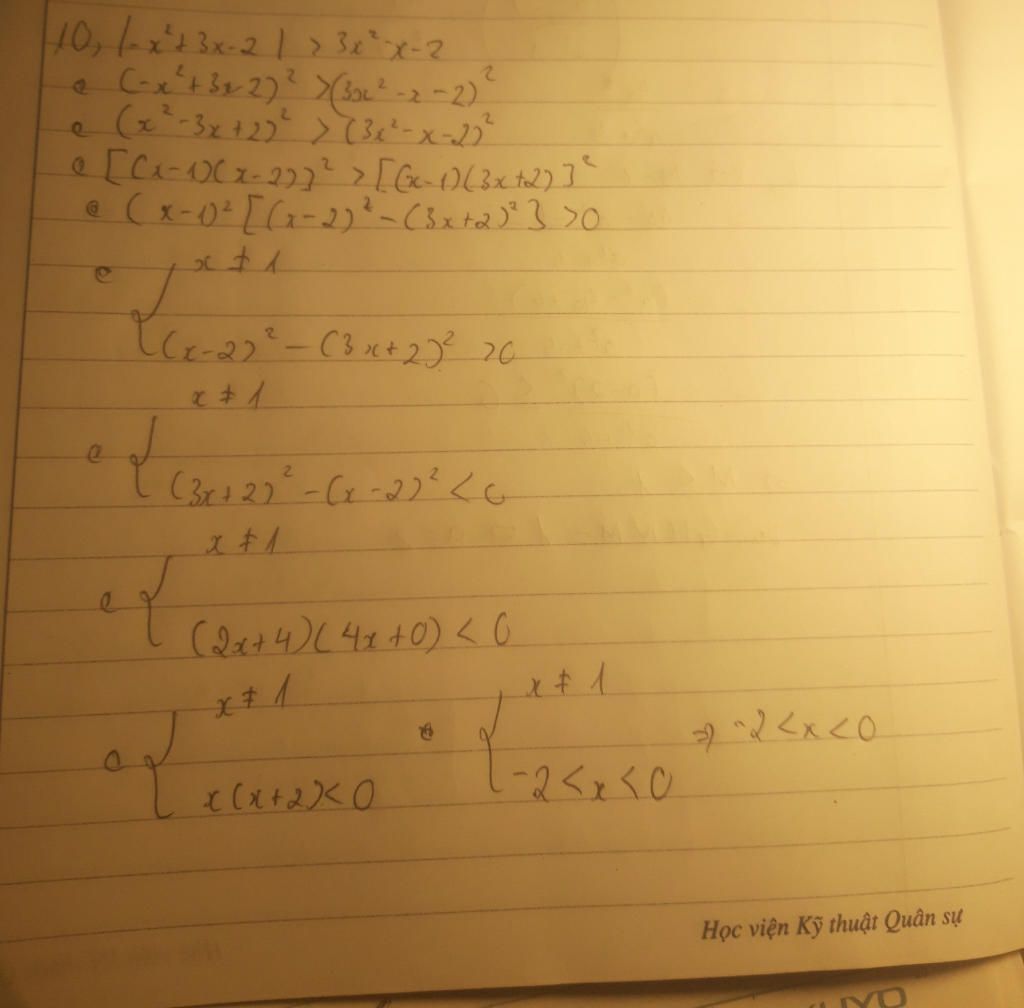 10, |-x²+3x-2| > 3x²-x-2
(-x²+3x-2)² > (3x²-x-2)²
(x²-3x+2)² > (3x²-x-2)²
[(x-1)(x-2)]² > [(x-1)(3x+2)]²
(x-1)² [(x-2)² - (3x+2)²] > 0
x ≠ 1
(x-2)² - (3x+2)² > 0
x ≠ 1
(3x+2)² - (x-2)² < 0
x ≠ 1
(2x+4)(4x+0) < 0
x ≠ 1 x ≠ 1
⇒ -2 < x < 0
x(x+2) < 0 -2 < x < 0
Học viện Kỹ thuật Quân sự